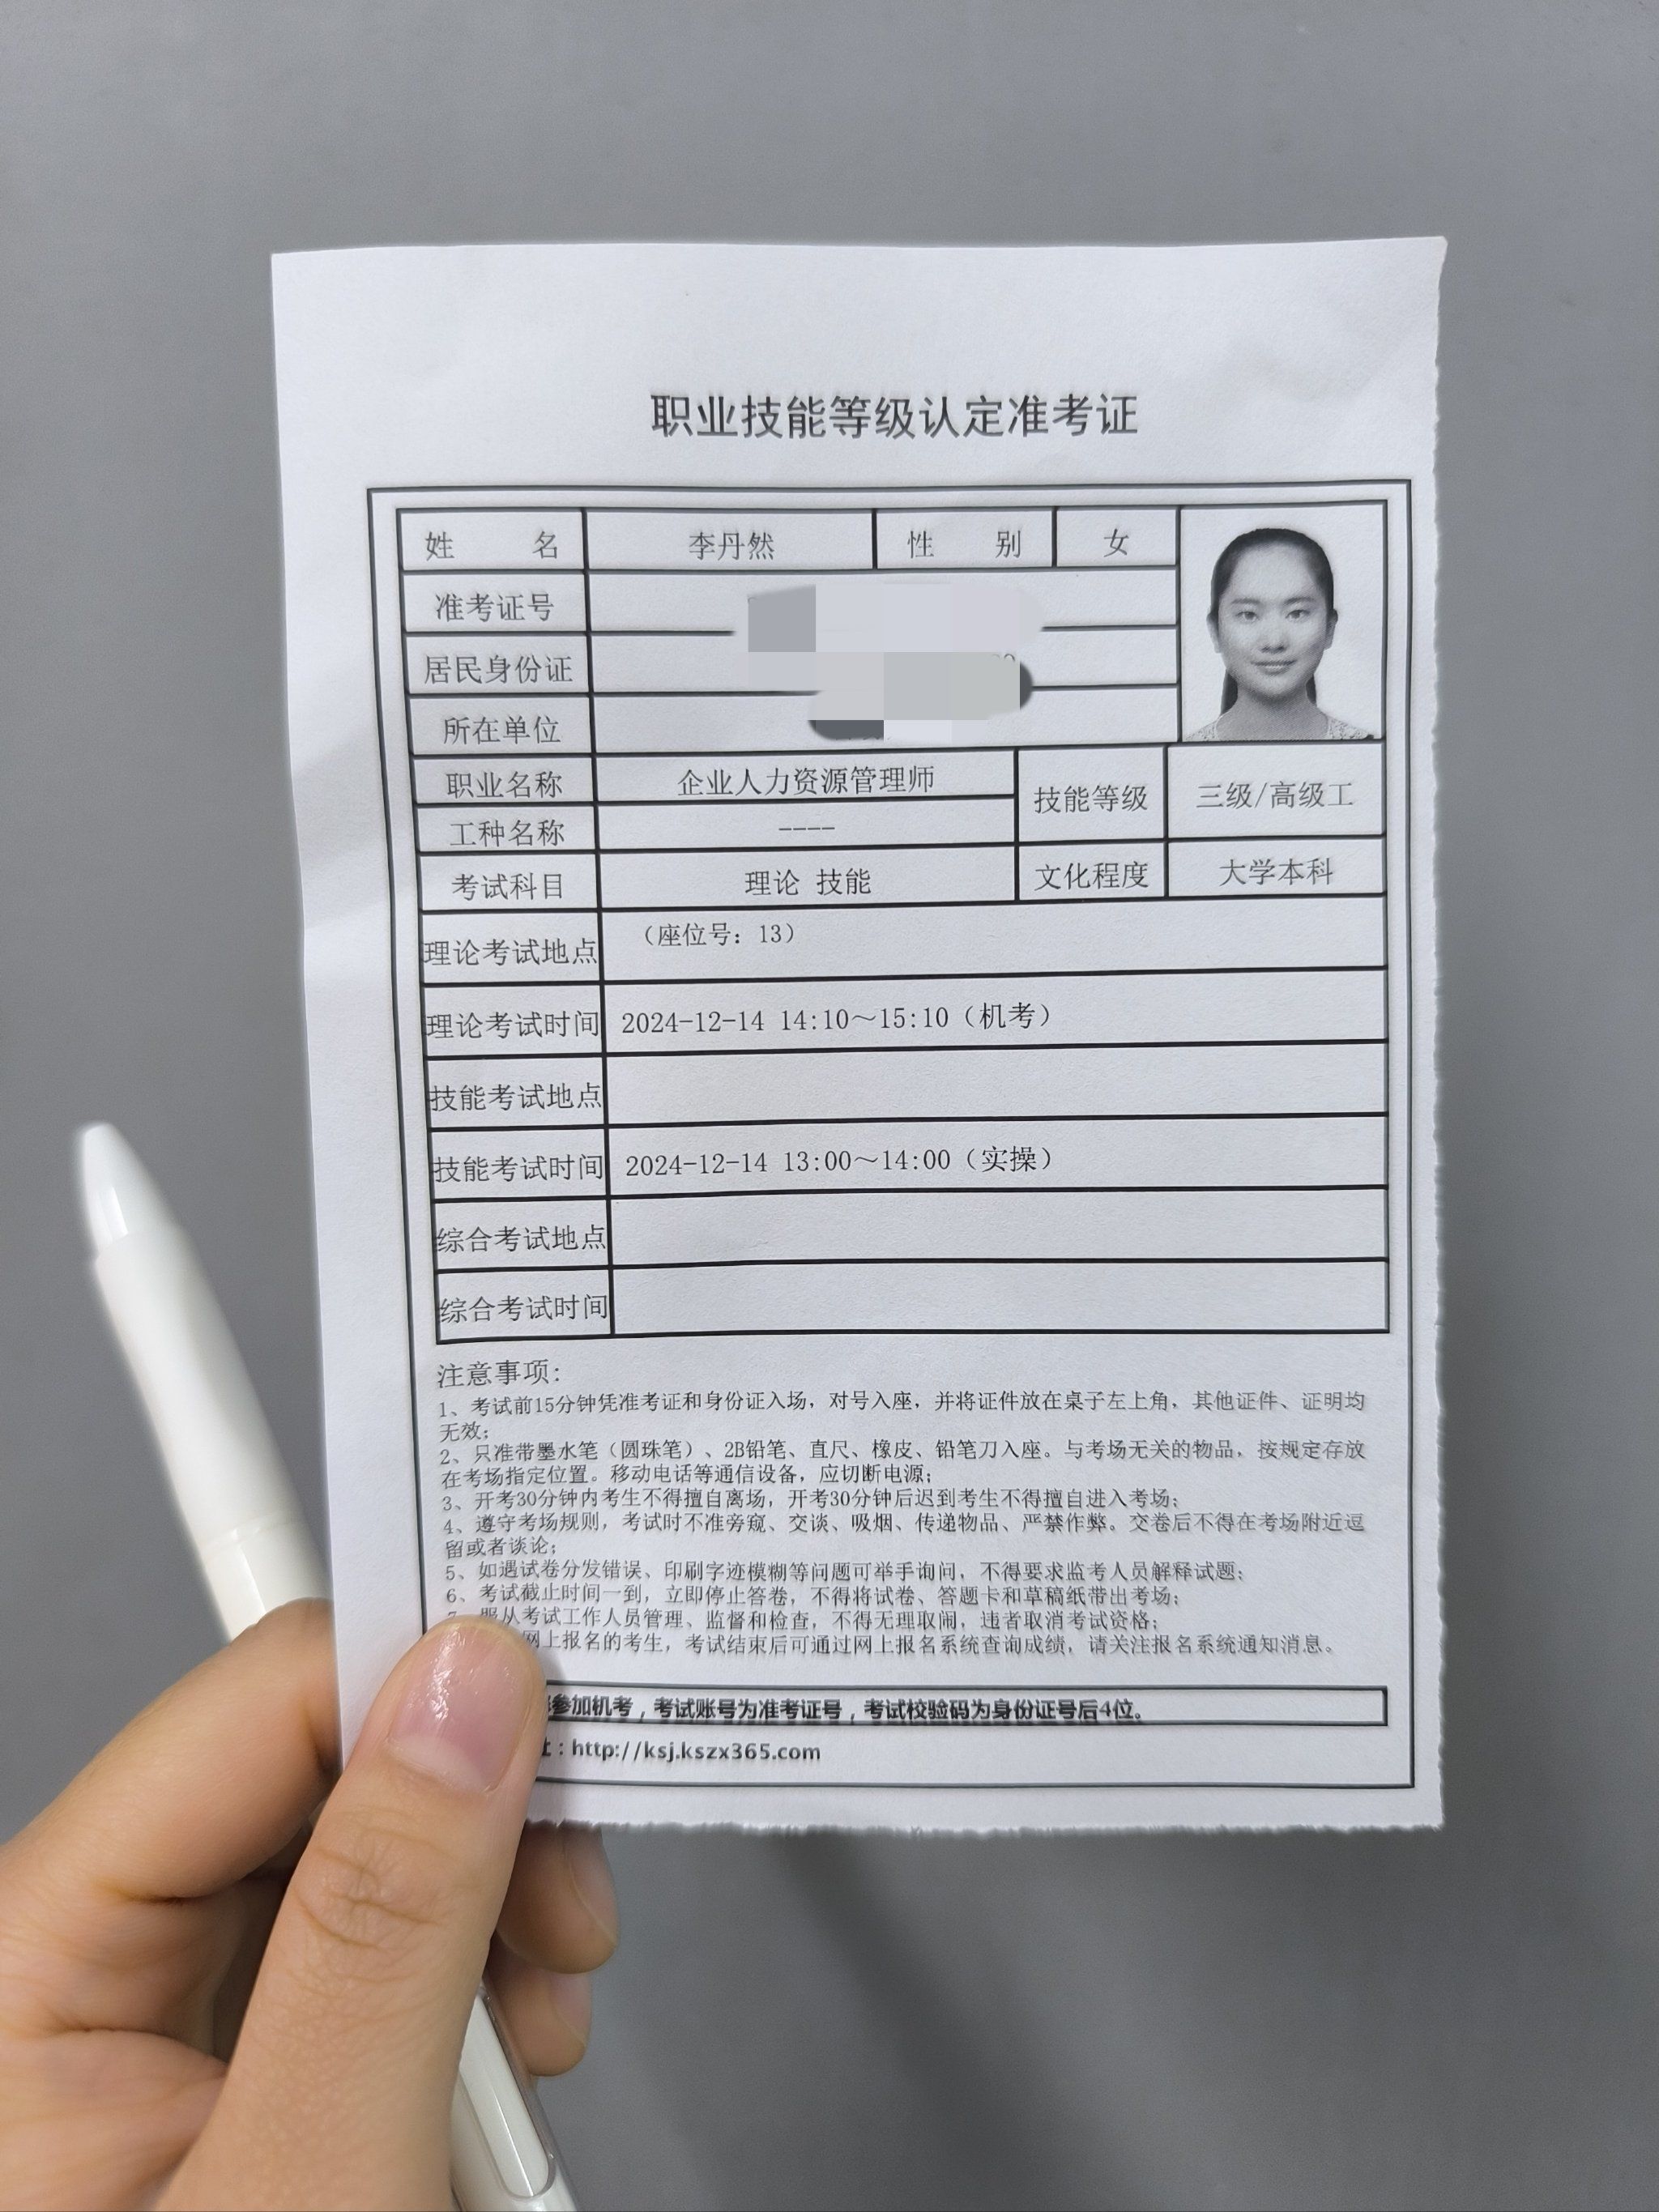 职业技能等级认定准考证
姓 名 李丹然 性 别 女
准考证号
居民身份证
所在单位
职业名称 企业人力资源管理师 技能等级 三级/高级工
工种名称 ----
考试科目 理论 技能 文化程度 大学本科
理论考试地点 （座位号：13）
理论考试时间 2024-12-14 14:10～15:10（机考）
技能考试地点
技能考试时间 2024-12-14 13:00～14:00（实操）
综合考试地点
综合考试时间
注意事项：
1、考试前15分钟凭准考证和身份证入场，对号入座，并将证件放在桌子左上角，其他证件、证明均
无效；
2、只准带墨水笔（圆珠笔）、2B铅笔、直尺、橡皮、铅笔刀入座。与考场无关的物品，按规定存放
在考场指定位置。移动电话等通信设备，应切断电源；
3、开考30分钟内考生不得擅自离场，开考30分钟后迟到考生不得擅自进入考场；
4、遵守考场规则，考试时不准旁窥、交谈、吸烟、传递物品、严禁作弊。交卷后不得在考场附近逗
留或者谈论；
5、如遇试卷分发错误、印刷字迹模糊等问题可举手询问，不得要求监考人员解释试题；
6、考试截止时间一到，立即停止答卷，不得将试卷、答题卡和草稿纸带出考场；
7、服从考试工作人员管理、监督和检查，不得无理取闹，违者取消考试资格；
网上报名的考生，考试结束后可通过网上报名系统查询成绩，请关注报名系统通知消息。
参加机考，考试账号为准考证号，考试校验码为身份证号后4位。
：http://ksj.kszx365.com